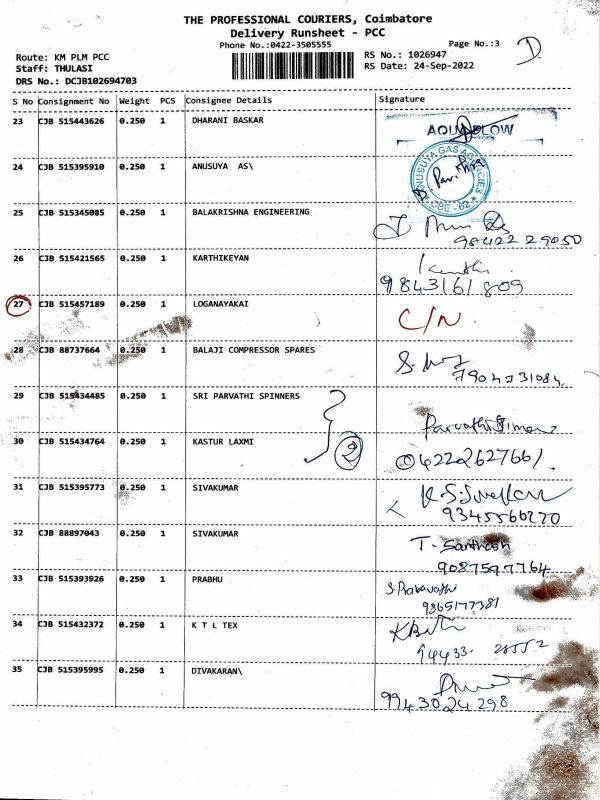 THE PROFESSIONAL COURIERS, Coimbatore
Delivery Runsheet - PCC
Phone No.:0422-3505555
Page No.:3
Route: KM PLM PCC
Staff: THULASI
DRS No.: DCJB102694703
RS No.: 1026947
RS Date: 24-Sep-2022
S No Consignment No Weight PCS Consignee Details Signature
23 CJB 515443626 0.250 1 DHARANI BASKAR
AQUA FLOW
24 CJB 515395910 0.250 1 ANUSUYA AS\
ANUSUYA GAS AGENCIES
CBE - 62
25 CJB 515345085 0.250 1 BALAKRISHNA ENGINEERING
98422 29050
26 CJB 515421565 0.250 1 KARTHIKEYAN
9843161809
27 CJB 515457189 0.250 1 LOGANAYAKAI C/N
28 CJB 88737664 0.250 1 BALAJI COMPRESSOR SPARES
7904731084
29 CJB 515434485 0.250 1 SRI PARVATHI SPINNERS
2
30 CJB 515434764 0.250 1 KASTUR LAXMI
04222627661
31 CJB 515395773 0.250 1 SIVAKUMAR
9345566270
32 CJB 88897043 0.250 1 SIVAKUMAR T. Santhosh
9087597764
33 CJB 515393926 0.250 1 PRABHU S. Prabavathi
9865177381
34 CJB 515432372 0.250 1 K T L TEX
94433-28552
35 CJB 515395995 0.250 1 DIVAKARAN\
9943024298